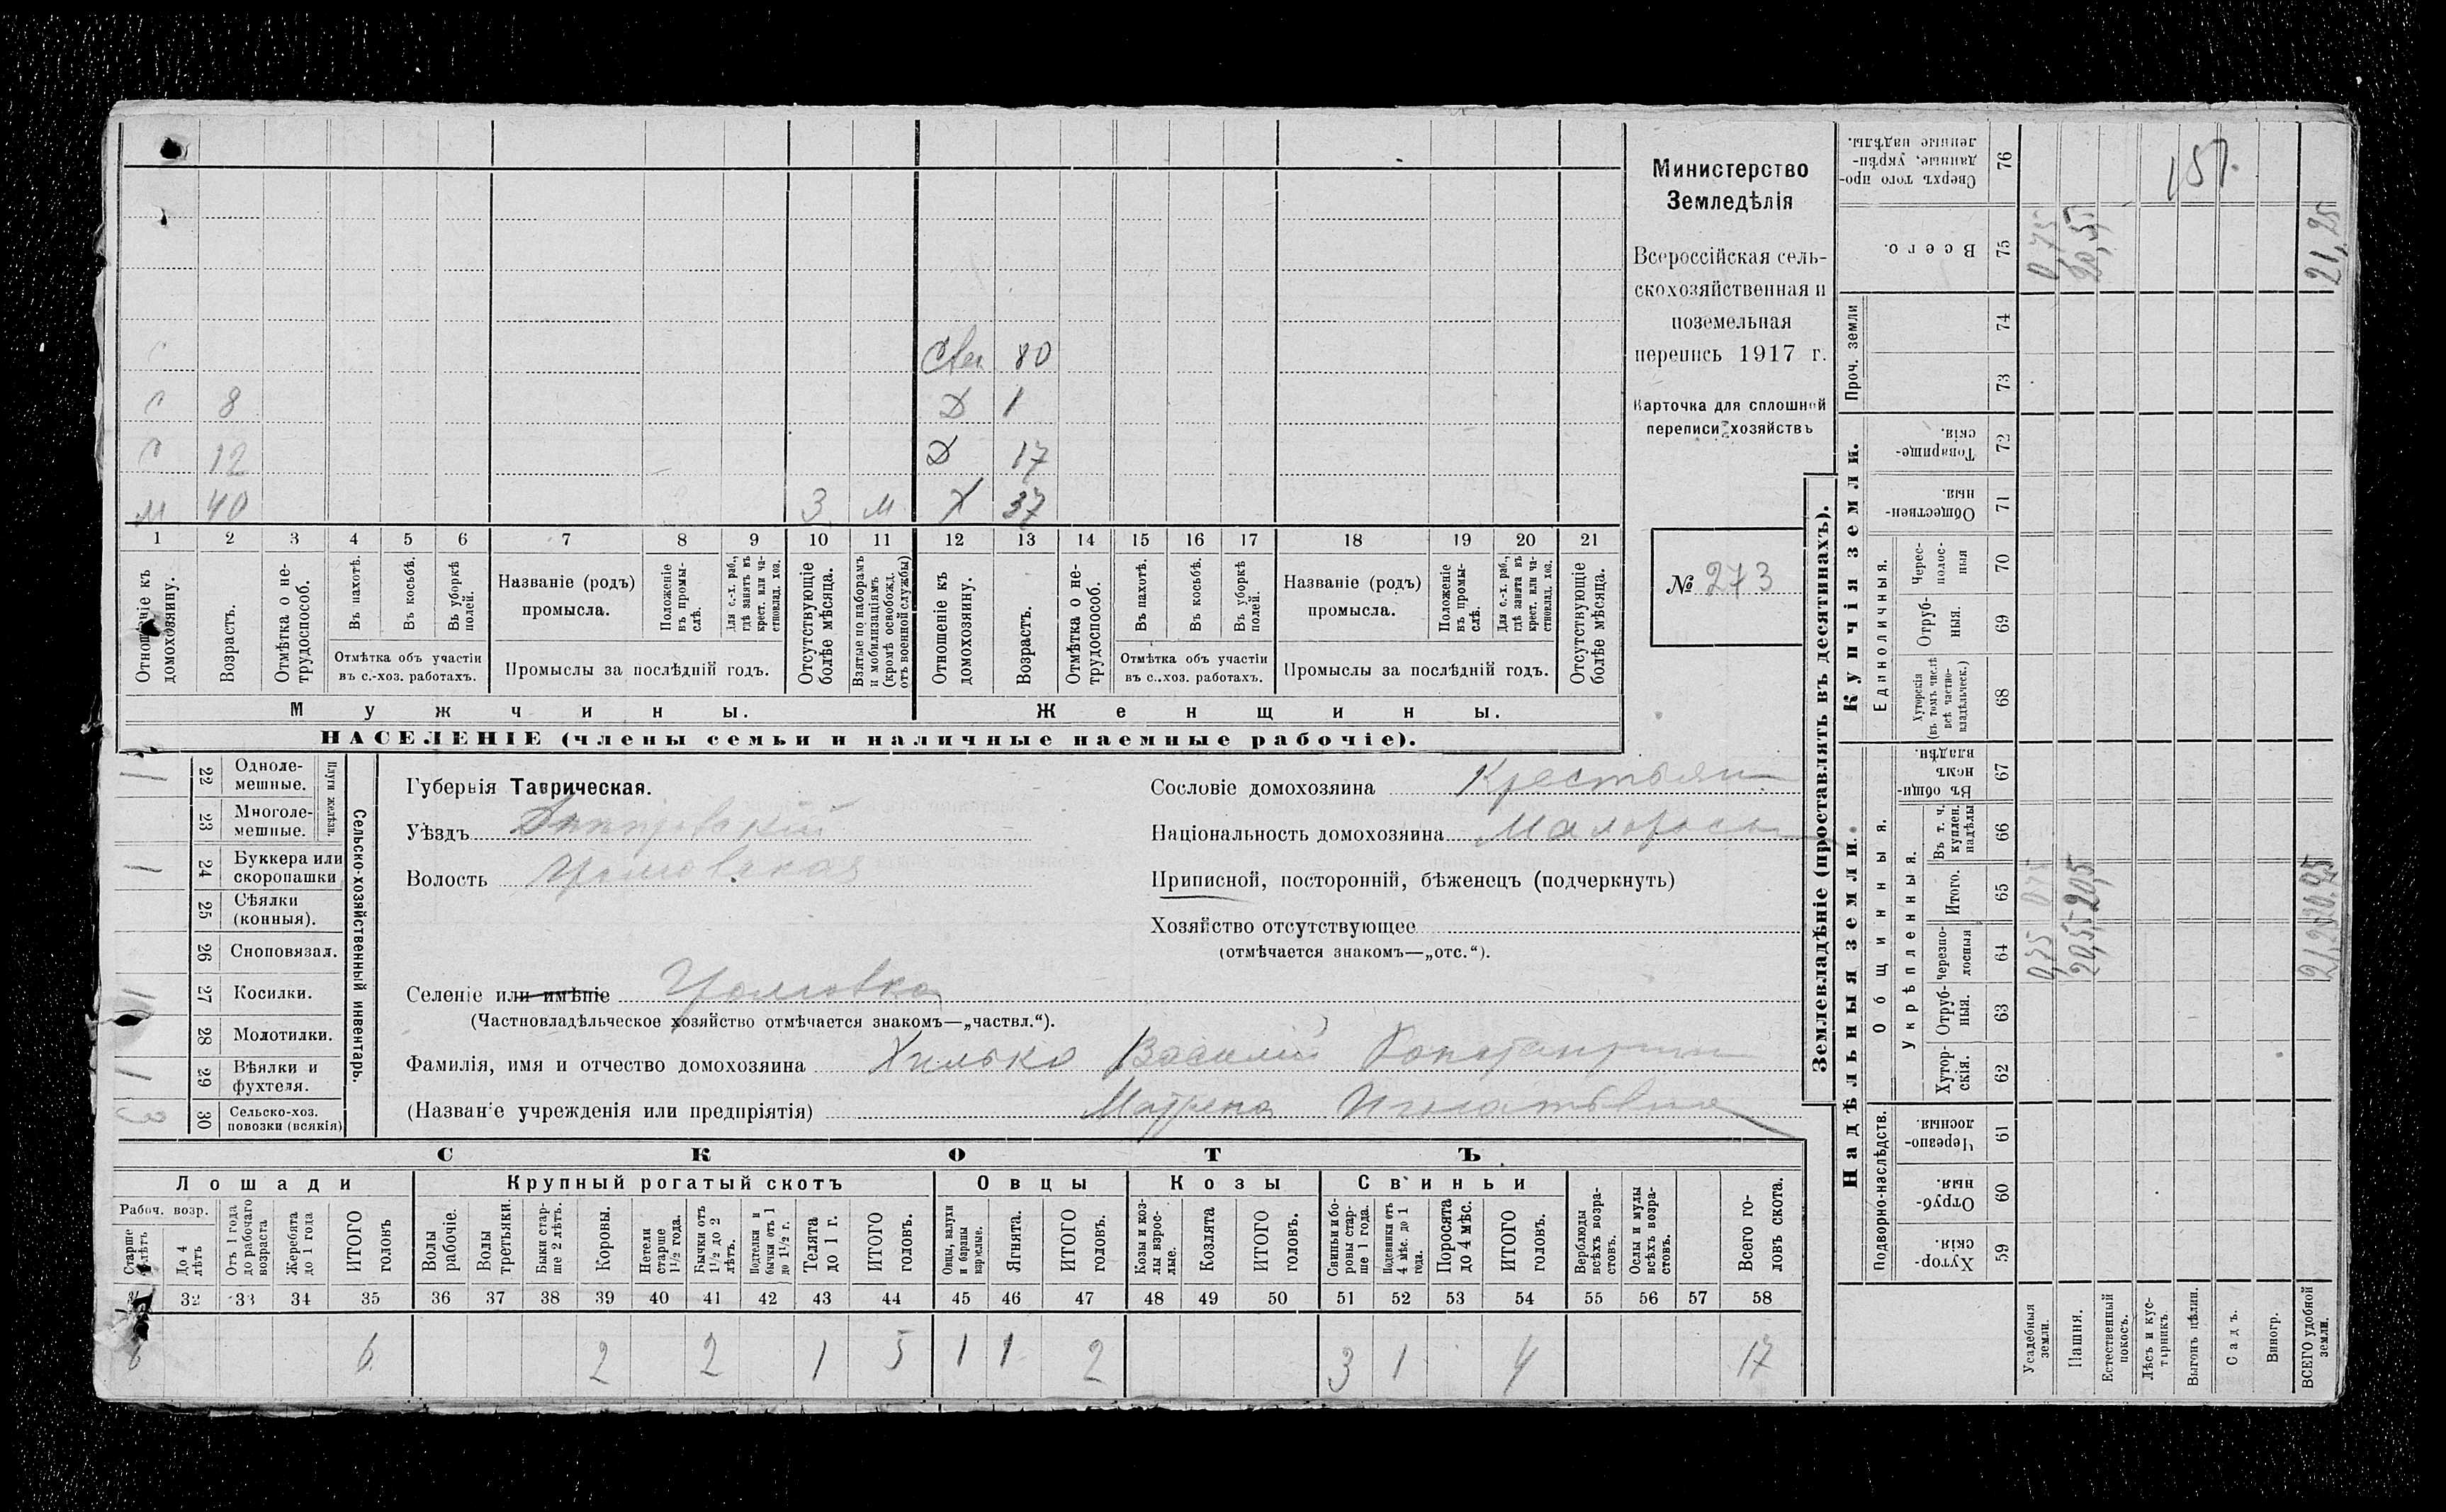 Министерство
Земледѣлія
Всероссійская сель-
скохозяйственная и
поземельная
перепись 1917 г.
Карточка для сплошной
переписи хозяйствъ
№ 273
С
С 8
С 12
М 40 З М
Свек 80
Д 1
Д 17
Х 37
1 2 3 4 5 6 7 8 9 10 11 12 13 14 15 16 17 18 19 20 21
Отношеніе къ домохозяину.
Возрастъ.
Отмѣтка о не-трудоспособ.
Въ пахотѣ.
Въ косьбѣ.
Въ уборкѣ полей.
Отмѣтка объ участіи
въ с.-хоз. работахъ.
Названіе (родъ)
промысла.
Положеніе въ промы-слѣ.
Для с.-х. раб., гдѣ занятъ въ крест. или ча-стновлад. хоз.
Промыслы за послѣдній годъ.
Отсутствующіе болѣе мѣсяца.
Взятые по наборамъ и мобилизаціямъ (кромѣ освобожд. отъ военной службы)
Отношеніе къ домохозяину.
Возрастъ.
Отмѣтка о не-трудоспособ.
Въ пахотѣ.
Въ косьбѣ.
Въ уборкѣ полей.
Отмѣтка объ участіи
въ с..хоз. работахъ.
Названіе (родъ)
промысла.
Положеніе въ промы-слѣ.
Для с.-х. раб., гдѣ занята въ крест. или ча-стновлад. хоз.
Промыслы за послѣдній годъ.
Отсутствующіе болѣе мѣсяца.
Мужчины.
Женщины.
НАСЕЛЕНІЕ (члены семьи и наличные наемные рабочіе).
Сельско-хозяйственный инвентарь.
Плуги желѣзн.
22 Одноле-мешные. 1
23 Многоле-мешные.
24 Буккера или скоропашки 1
25 Сѣялки (конныя).
26 Сноповязал.
27 Косилки. 1
28 Молотилки.
29 Вѣялки и фухтеля. 1
30 Сельско-хоз. повозки (всякія) 3
Губернія Таврическая.
Уѣздъ Днепровскій
Волость Громовская
Селеніе или имѣніе Громовка
(Частновладѣльческое хозяйство отмѣчается знакомъ—„частвл.“).
Сословіе домохозяина Крестьян
Національность домохозяина Малоросс
Приписной, посторонній, бѣженецъ (подчеркнуть)
Хозяйство отсутствующее
(отмѣчается знакомъ—„отс.“).
Фамилія, имя и отчество домохозяина Хилько Василій Константин
(Названіе учрежденія или предпріятія) Матрена Игнатьевна
СКОТЪ
Лошади
Крупный рогатый скотъ
Овцы
Козы
Свиньи
Рабоч. возр.
Старше 4 лѣтъ
До 4 лѣтъ
Отъ 1 года до рабочаго возраста
Жеребята до 1 года
ИТОГО головъ
Волы рабочіе.
Волы третьяки.
Быки стар-ше 2 лѣтъ.
Коровы.
Нетели старше 1½ года.
Бычки отъ 1½ до 2 лѣтъ.
Подтелки и бычки отъ 1 до 1½ г.
Телята до 1 г.
ИТОГО головъ.
Овцы, валухи и бараны взрослые.
Ягнята.
ИТОГО головъ.
Козы и коз-лы взрос-лые.
Козлята
ИТОГО головъ.
Свиньи и бо-ровы стар-ше 1 года.
Подсвинки отъ 4 мѣс. до 1 года.
Поросята до 4 мѣс.
ИТОГО головъ.
Верблюды всѣхъ возра-стовъ.
Ослы и мулы всѣхъ возра-стовъ.
Всего го-ловъ скота.
31 32 33 34 35 36 37 38 39 40 41 42 43 44 45 46 47 48 49 50 51 52 53 54 55 56 57 58
6 6 2 2 1 5 1 1 2 3 1 4 17
Землевладѣніе (проставлять въ десятинахъ).
Надѣльныя земли.
Купчія земли.
Проч. земли
Подворно-наслѣдств.
Общинныя.
Укрѣпленныя.
Единоличныя.
Хутор-скія. 59
Отруб-ныя. 60
Черезпо-лосныя. 61
Хутор-скія. 62
Отруб-ныя. 63
Черезпо-лосныя 64
Итого. 65
Въ т. ч. куплен. надѣлы 66
Въ общин-номъ владѣн. 67
Хуторскія (въ томъ числѣ всѣ частно-владѣльческ.) 68
Отруб-ныя. 69
Черес-полос-ныя 70
Обществен-ныя. 71
Товарище-скія. 72
73
74
Всего. 75
Сверхъ того про-данные, укрѣп-ленные надѣлы. 76
Усадебныя земли. 0,75 0,75 0,75
Пашня. 20,5 20,5 20,5
Естественный покосъ.
Лѣсъ и кус-тарникъ.
Выгонъ цѣлин.
Садъ.
Виногр.
ВСЕГО удобной земли. 21,25 21,25